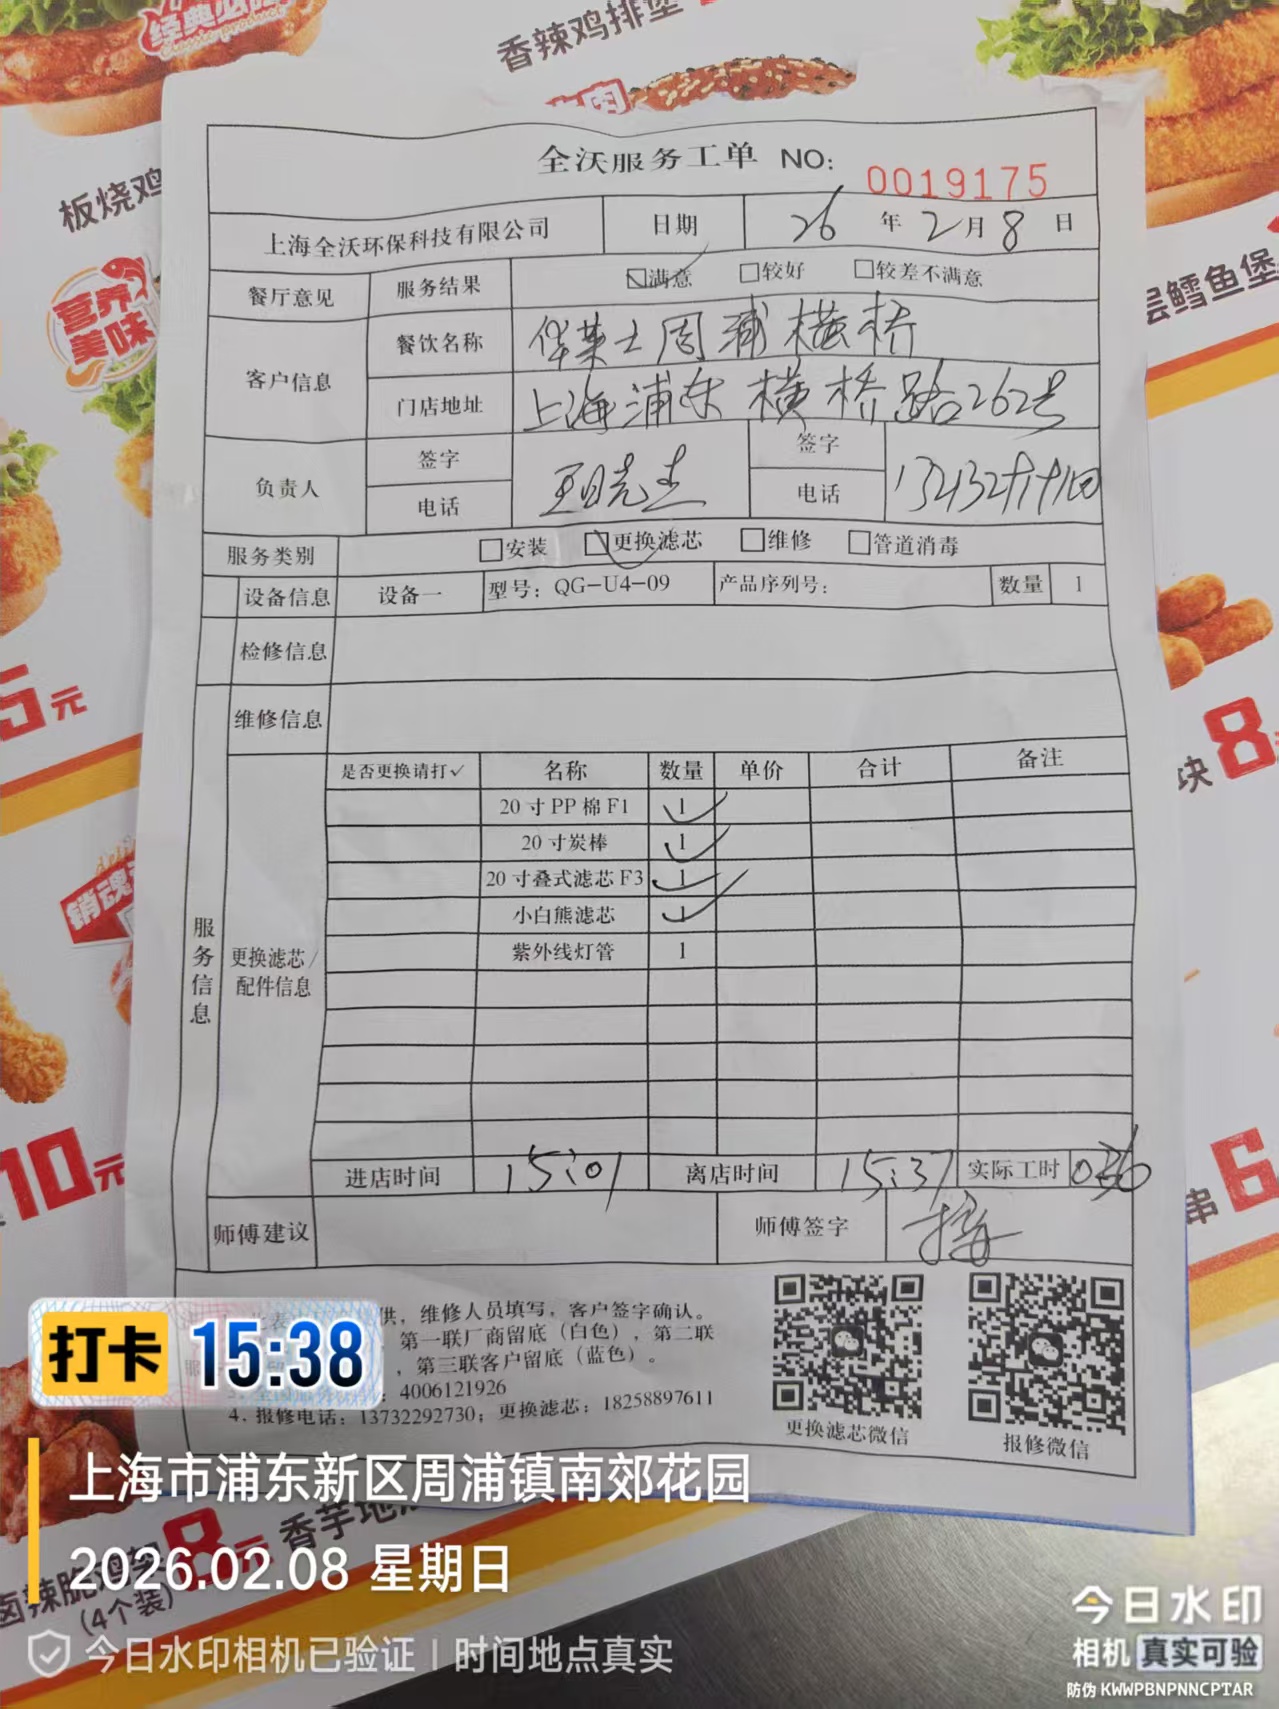 经典必吃
Classic product
香辣鸡排堡
板烧鸡
营养
美味
层鳕鱼堡
全沃服务工单 NO: 0019175
上海全沃环保科技有限公司 日期 26 年 2 月 8 日
餐厅意见 服务结果 ☑满意 □较好 □较差不满意
客户信息 餐饮名称 华莱士周浦横桥
门店地址 上海浦东横桥路262号
负责人 签字 签字
电话 电话
服务类别 □安装 ☑更换滤芯 □维修 □管道消毒
设备信息 设备一 型号: QG-U4-09 产品序列号: 数量 1
检修信息
维修信息
是否更换请打✓ 名称 数量 单价 合计 备注
20寸PP棉F1 1 ✓
20寸炭棒 1 ✓
20寸叠式滤芯F3 1 ✓
小白熊滤芯 1 ✓
紫外线灯管 1
服务信息
更换滤芯/
配件信息
进店时间 15:01 离店时间 15:37 实际工时 036
师傅建议 师傅签字
供，维修人员填写，客户签字确认。
第一联厂商留底（白色），第二联
，第三联客户留底（蓝色）。
: 4006121926
4. 报修电话: 13732292730; 更换滤芯: 18258897611
更换滤芯微信 报修微信
5元
块8
销魂
10元
串6
8元
香芋地
(4个装)
打卡 15:38
上海市浦东新区周浦镇南郊花园
2026.02.08 星期日
今日水印相机已验证 | 时间地点真实
今日水印
相机 真实可验
防伪 KWWPBNPNNCPTAR